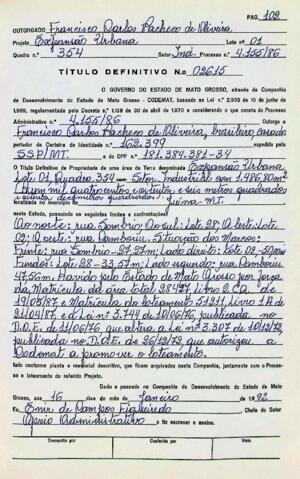 PAG. 102
OUTORGADO Francisco Carlos Pacheco de Oliveira
Projeto Expansão Urbana Lote n.o 01
Quadra n.o 354 Setor Ind. Processo n.o 4.155/86
TÍTULO DEFINITIVO N.o 02615
O GOVERNO DO ESTADO DE MATO GROSSO, através da Companhia
de Desenvolvimento do Estado de Mato Grosso - CODEMAT, baseado na Lei n.o 2.933 de 10 de junho de
1969, regulamentada pelo Decreto n.o 1.128 de 30 de abril de 1970 e considerando o que consta do Processo
Administrativo n.o 4.155/86 Outorga a
Francisco Carlos Pacheco de Oliveira, brasileiro, casado
portador da Carteira de Identidade n.o 162.399 expedida pela
SSP/MT. e do CPF n.o 181.384.381-34
o Título Definitivo de Propriedade de uma área de Terra denominada Expansão Urbana,
Lote 01, Quadra 354 - Setor Industrial com 1.486,80m²
(Hum mil quatrocentos e oitenta e seis metros quadrados
e oitenta decímetros quadrados).
localizada no município de Juina-MT.
neste Estado, possuindo os seguintes limites e confrontações:
Ao norte: rua Sombrio; Ao sul: Lote 28; A leste: Lote
02; A oeste: rua Camboriu. Situação dos Marcos:
Frente: rua Sombrio - 27,27m; Lado direito: Lote 02-50,00m
Fundos: Lote 28 - 33,57m; Lado esquerdo: rua Camboriu
47,56m. Havido pelo Estado de Mato Grosso por força
da Matrícula da área total 28437, Livro 2.CQ. de
19/05/87 e Matrícula do loteamento 51211, Livro 1A de
21/04/87 e a Lei n.o 3.744 de 10/06/76, publicada no
D.O.E. de 11/06/76 que altera a Lei n.o 3.307 de 10/12/72,
publicada no D.O.E. de 26/12/72 que autorizou a
Codemat a promover o loteamento.
tudo conforme planta e memorial descritivo, que ficam arquivados nesta Companhia, juntamente com o Processo
e loteamento do referido Projeto.
Dado e passado na Companhia de Desenvolvimento do Estado de Mato
Grosso, aos 16 dias do mês de Janeiro de 1.992
Eu, Enir de Campos Figueiredo Chefe do Setor
Apoio Administrativo o fiz escrever e assino.
Transcrito por
Conferido por
Visto